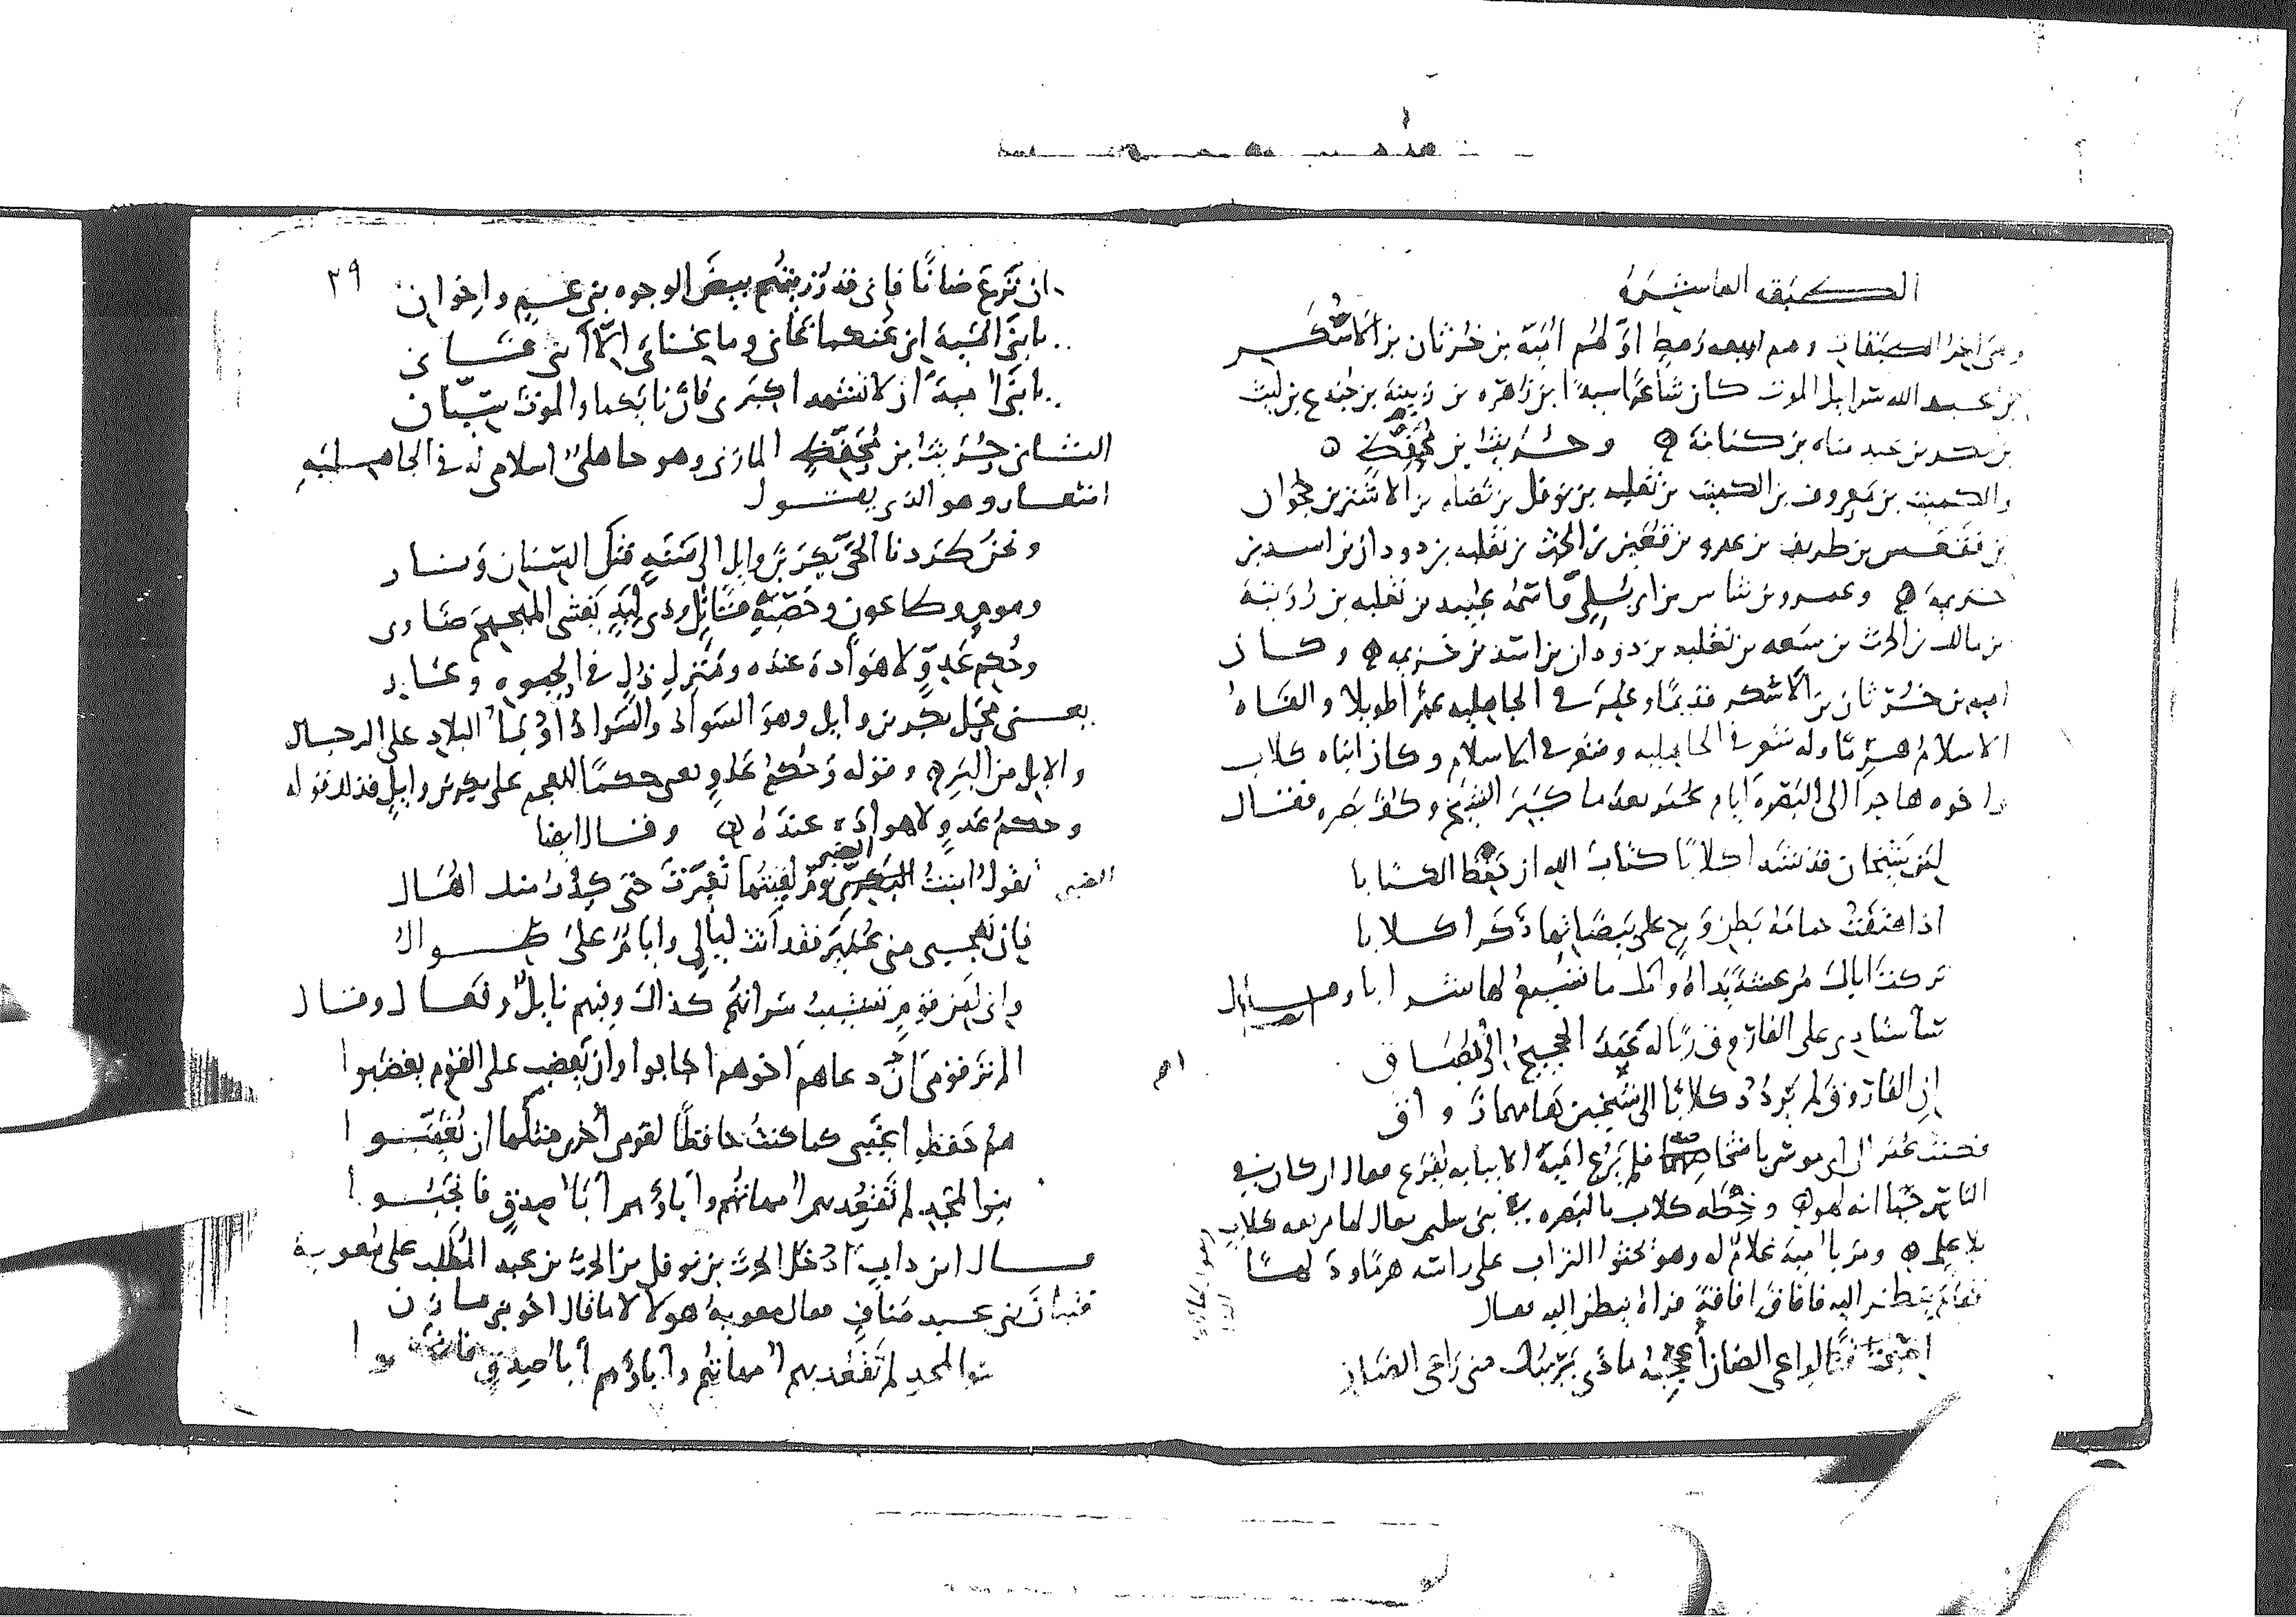 الطبقه العاشرة
وهى اخر الطبقات وهم اربعه رهط اوّلهم اميّة بن حُرثان بن الأشكر
بن عبد الله سرابيل الموت كان شاعرًا سيدًا ابن زاهره بن زبينة بن جندع بن ليث
بن بكر بن عبد مناه بن كنانة ه وحُرَيث بن مُحَفّظ ه
والكميت بن معروف بن الكميت بن ثعلبه بن نوفل بن نضله بن الاشتر بن جحوان
بن فقعس بن طريف بن عمرو بن قعين بن الحرث بن ثعلبه بن دودان بن اسد بن
خزيمة ه وعمرو بن شاس بن ابى بُلىّ واسمه عبيد بن ثعلبه بن رُوَيبة
بن مالك بن الحرث بن سعد بن ثعلبه بن دودان بن اسد بن خزيمه ه وكان
اميه بن حُرثان بن الأشكر قديمًا وعُمِّر فى الجاهليه عمرًا طويلا والفاهُ
الاسلام هرِمًا وله شعر فى الجاهليه وشعر فى الاسلام وكان ابناه كلاب
واخوه هاجرا الى البصره ايام عمر بعد ما كبر الشيخ وكفّ بصره فقال
لمن شيخان قد نشدا كلابًا كتاب الله ان حفظ الكتابا
اذا هتفت حمامة بطن وجٍ على بيضاتها ذكرا كلابا
تركت اباك مُرعشةً يداهُ وامّك ما تُسيغ لها شرابا وقال
سأستادى على الفاروق ربًّا له عَمَد الحجيجُ الى بُصاق
إن الفاروق لم يردُد كلابًا الى شيخين هامهما زواق
فكتب عمر الى ابى موسى باشخاصه فلم يَرُع اميّة الا ببابه يقرع فقال ان كان فى
الناس حيًّا انه لهو ه وخِطّه كلاب بالبصره فى بنى سليم يقال لها مربعه كلاب
بلا علم ه ومرّ بأميّة غلامٌ له وهو يحثو التراب على راسه هرمًا ودَلهًا
فقام ينظر اليه فافاق افاقةً فراهُ ينظر اليه فقال
اصبحت فنًّا لراعى الضان أُعجبُه ماذى يَريبُك منى راعى الضان
٣٩
ان تَرعَ ضانًا فإنى قد رُزِيتُهم بيضَ الوجوه بنى عمى واخوانى
يا بنى اميّة انى عنكما غانى وما بى الا اننى فانى
يا بنى اميّة ان لا تشهدا كبرى فان نأيكما والموت سيّان
الثانى حُرَيث ابن مُحَفّظ المازنى وهو جاهلىٌّ اسلامى له فى الجاهليه
اشعار وهو الذى يقول
ونحن طردنا الحىّ بكر بن وايل الى سنةٍ مثل السنان ونار
وموم وطاعون وحصبة قاتلٍ وذى لبدٍ يغشى المهجهج ضارى
وحُكم عدوٍّ لا هوادة عنده ومنزل ذلٍ فى الحيوه وعار
يعنى بكر بن وايل وهو السواد والسواد اوبأ البلاد على الرجال
والابل من البر ه وقوله وحُكم عدوٍ يعنى حكم العجم على بكر بن وايل فذلك قوله
وحكم عدوٍ لا هوادة عندهُ ه وقال ايضا
تقول ابنة الضبى يوم لقيتها تغيّرت حتى كدت منك اهال
فإن تعجبى منى عُمير فقد أتت ليالٍ وايامٌ علىّ طوال
وانى لمن قومٍ تشيبُ سراتهم كذاك وفيهم نايلٌ وفعال وقال
الم تر قومى ان دعاهم اخوهم اجابوا وان يغضب على القوم يغضبوا
هم حفظوا غيبى كما كنت حافظًا لقومى اخرى مثلها ان تغيّبوا
بنو المجد لم تقعد بهم امهاتهم وآباؤهم آباءُ صدقٍ فانجبوا
قال ابن داب ادخل الحرث بن نوفل بن الحرث بن عبد المطلب على معوية
فتيان بنى عبد مناف فقال معوية هولا كما قال اخو بنى مازن
بنو المجد لم تقعد بهم امهاتهم وآباؤهم آباءُ صدقٍ فانجبوا
الضبى